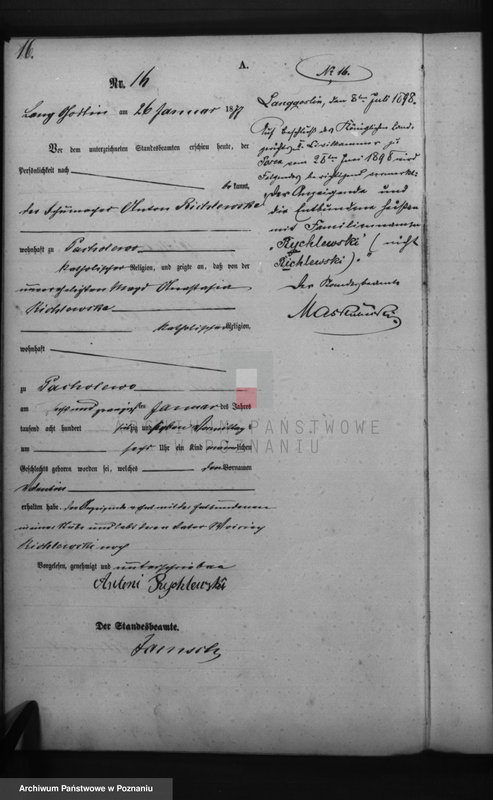 16.
A.
Nr. 16
Lang Goslin am 26 Januar 1877
Vor dem unterzeichneten Standesbeamten erschien heute, der
Persönlichkeit nach
bekannt,
der Schumacher Anton Richlewski
wohnhaft zu Pacholewo
katholischer Religion, und zeigte an, daß von der
unverehelichten Magd Anastasia
Richlewska
katholischer Religion,
wohnhaft
zu Pacholewo
am sechs und zwanzigsten Januar des Jahres
tausend acht hundert siebzig und sieben Vormittag s
um sechs Uhr ein Kind männlichen
Geschlechts geboren worden sei, welches den Vornamen
Valentin
erhalten habe. Der Anzeigende
Richlewski noch
Vorgelesen, genehmigt und unterschrieben
Antoni Rychlewski
Der Standesbeamte.
No 16.
Langgoslin, den 8ten Juli 1898.
Auf Beschluß des Königlichen Land-
gerichts, Civilkammer zu
Posen vom 28ten Juni 1898 wird
Folgendes berichtigend vermerkt:
"Der Anzeigende und
die Entbundene heissen
mit Familiennamen
"Rychlewski" (nicht
Richlewski)."
Der Standesbeamte
ARCHIWUM PAŃSTWOWE
W POZNANIU
Archiwum Państwowe w Poznaniu